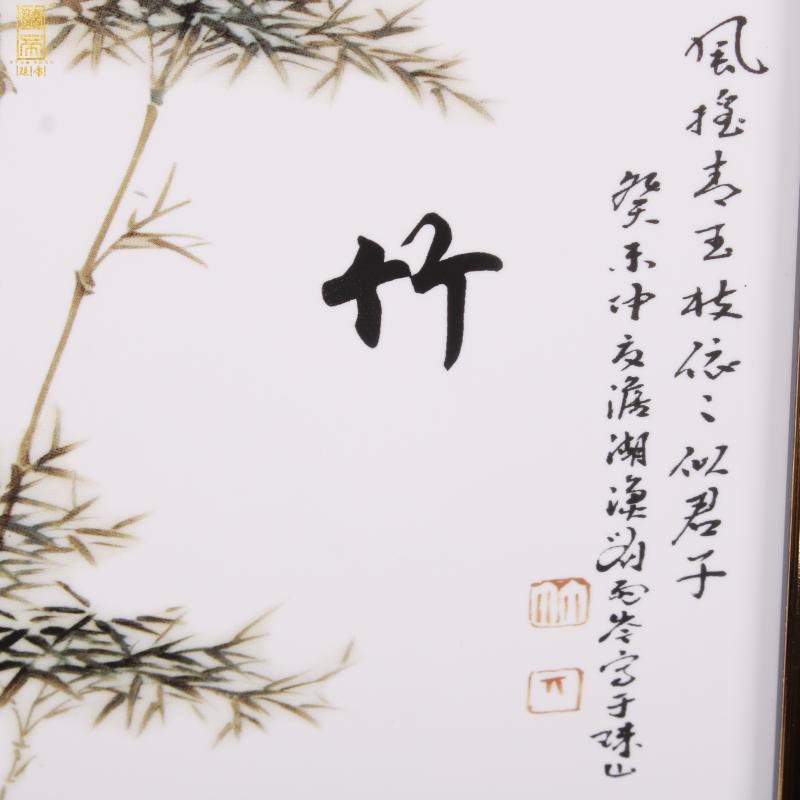 風搖青玉枝依〻似君子
癸未仲夏澹湖漁劉雨岑寫于珠山
竹